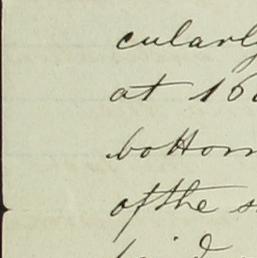 cularly
at 16
bottom
of the s